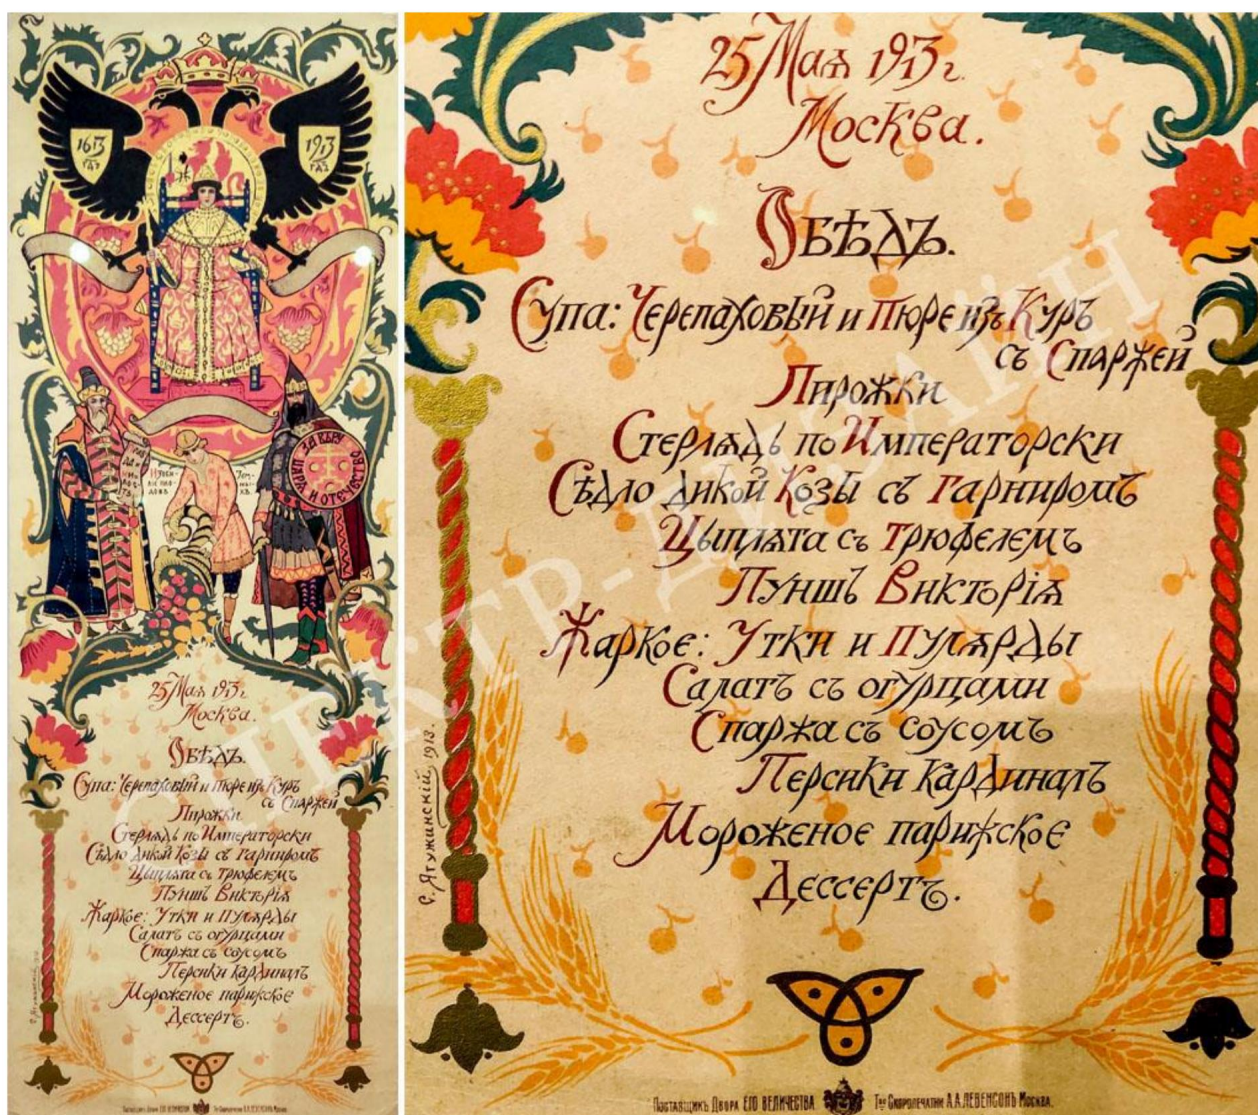 1613
ГОДЪ
1913
ГОДЪ
ЗА ВѢРУ
ЦАРЯ
И ОТЕЧЕСТВО
25 Мая 1913 г.
Москва.
Обѣдъ.
Супа: Черепаховый и Пюре изъ Куръ
съ Спаржей
Пирожки
Стерлядь по Императорски
Сѣдло дикой Козы съ гарниромъ
Цыплята съ трюфелемъ
Пуншъ Викторiя
Жаркое: Утки и Пулярды
Салатъ съ огурцами
Спаржа съ соусомъ
Персики кардиналъ
Мороженое парижское
Дессертъ.
С. Ягужинскiй 1913.
25 Мая 1913 г.
Москва.
Обѣдъ.
Супа: Черепаховый и Пюре изъ Куръ
съ Спаржей
Пирожки
Стерлядь по Императорски
Сѣдло дикой Козы съ гарниромъ
Цыплята съ трюфелемъ
Пуншъ Викторiя
Жаркое: Утки и Пулярды
Салатъ съ огурцами
Спаржа съ соусомъ
Персики кардиналъ
Мороженое парижское
Дессертъ.
С. Ягужинскiй 1913.
Поставщикъ Двора ЕГО ВЕЛИЧЕСТВА Тво Скоропечатни А.А.ЛЕВЕНСОНЪ Москва.